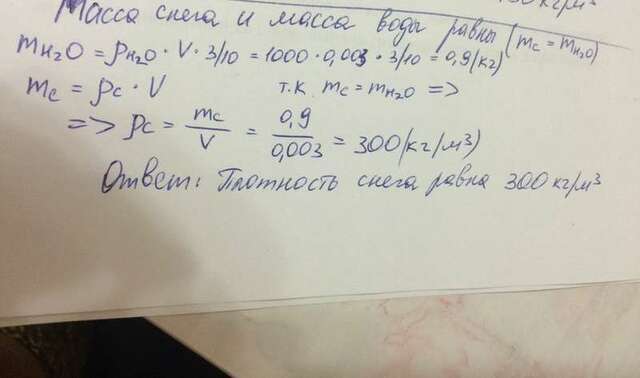 кг/м³
Масса снега и масса воды равны (mc = mH₂O)
mH₂O = ρH₂O · V · 3/10 = 1000 · 0,003 · 3/10 = 0,9 (кг)
mc = ρc · V т.к. mc = mH₂O =>
=> ρc = mc/V = 0,9/0,003 = 300 (кг/м³)
Ответ: Плотность снега равна 300 кг/м³